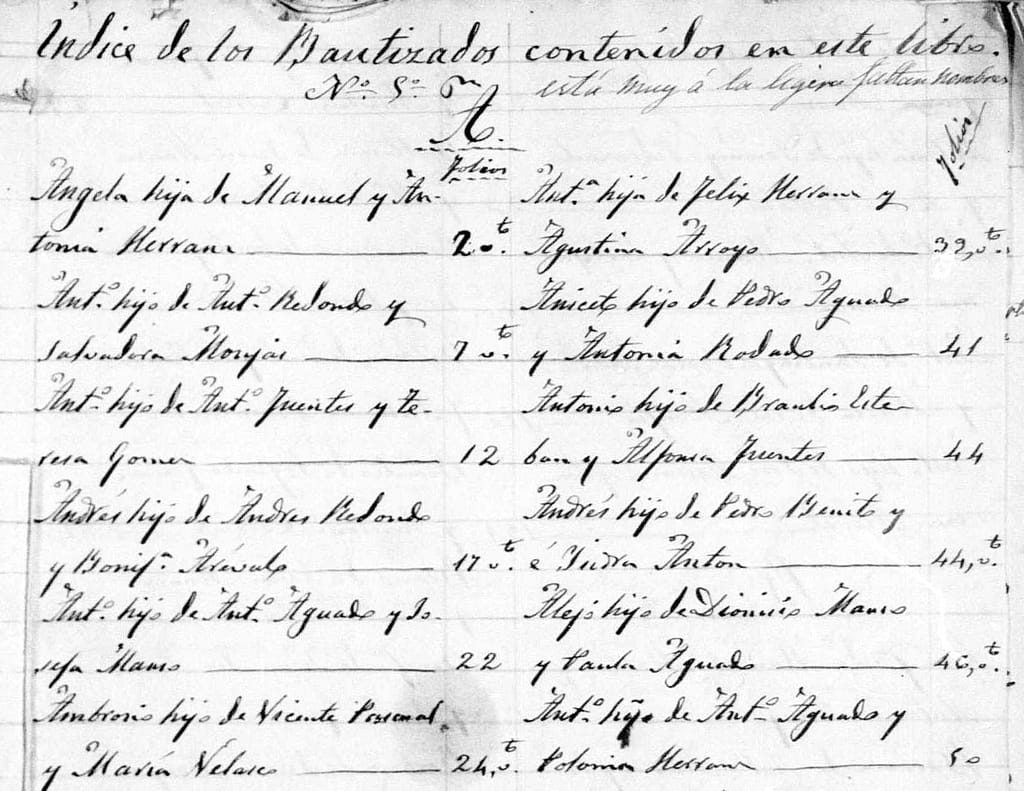 Indice de los Bautizados contenidos en este libro.
Nº 5º
está muy á la ligera faltan nombres
A.
folios
folios
Angela hija de Manuel y An-
tonia Herranz 2 vᵗ.
Antº hijo de Antº Redondo y
Salvadora Monjas 7 vᵗ.
Antº hijo de Antº Fuentes y Te-
resa Gomez 12
Andrés hijo de Andres Redondo
y Bonifª Arévalo 17 vᵗ.
Antº hijo de Antº Aguado y Jo-
sefa Manso 22
Ambrosio hijo de Vicente Pascual
y María Velasco 24, vᵗ.
Antª hija de Felix Herranz y
Agustina Arroyo 39, vᵗ.
Aniceto hijo de Pedro Aguado
y Antonia Rodado 41
Antonio hijo de Braulio Este-
ban y Alfonsa Fuentes 44
Andrés hijo de Pedro Benito y
é Isidra Anton 44, vᵗ.
Alejo hijo de Dionisio Manso
y Paula Aguado 46, vᵗ.
Antº hijo de Antº Aguado y
Polonia Herranz 50